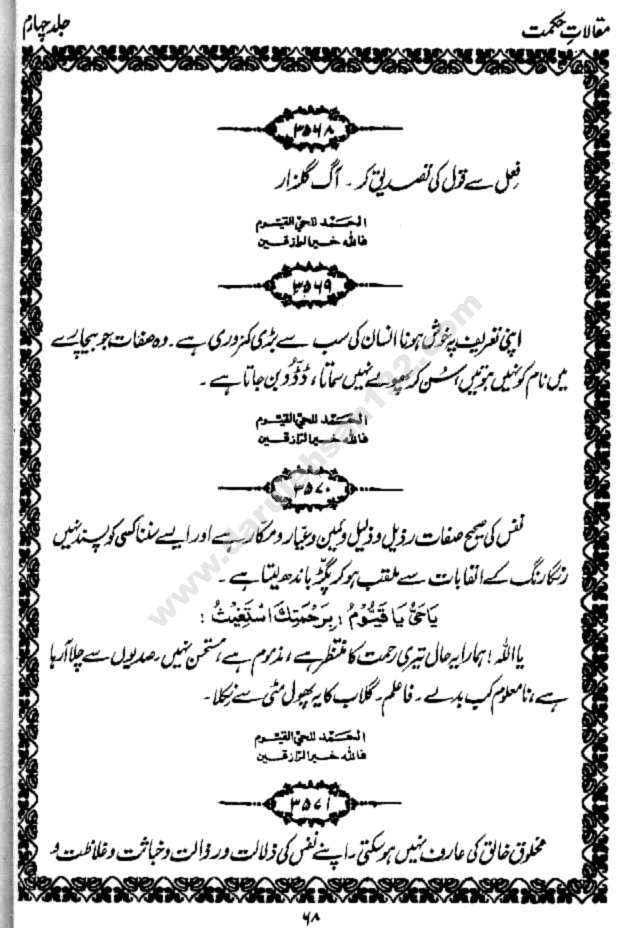 مقالاتِ حکمت
جلد چہارم
۳۵۶۸
فعل سے قول کی تصدیق کر ۔ آگ گلزار
الحَمد للحیّ القیّوم
فاللہ خیر الرازقین
۳۵۶۹
اپنی تعریف پر خوش ہونا انسان کی سب سے بڑی کمزوری ہے ۔ وہ صفات جو بیچارے
میں نام کو نہیں ہوتیں ، سُن کر پھولے نہیں سماتا ، ڈڈّو بن جاتا ہے ۔
الحَمد للحیّ القیّوم
فاللہ خیر الرازقین
۳۵۷۰
نفس کی صحیح صفات رذیل و ذلیل و کمین و عیّار و مکّار ہے اور ایسے سننا کسی کو پسند نہیں
رنگا رنگ کے القابات سے ملقب ہو کر پگڑ باندھ لیتا ہے ۔
یَا حَیُّ یَا قَیُّوْمُ ؛ بِرَحْمَتِكَ اَسْتَغِیْثُ ؛
یا اللہ ! ہمارا یہ حال تیری رحمت کا منتظر ہے ، مذموم ہے ، مستحسن نہیں ۔ صدیوں سے چلا آ رہا
ہے ، نا معلوم کب بدلے ۔ فاعلم ۔ گلاب کا یہ پھول مٹی سے نکلا ۔
الحَمد للحیّ القیّوم
فاللہ خیر الرازقین
۳۵۷۱
مخلوق خالق کی عارف نہیں ہو سکتی ۔ اپنے نفس کی ذلالت و رذالت و خباثت و غلاظت و
۶۸
www.darulehsan132.com